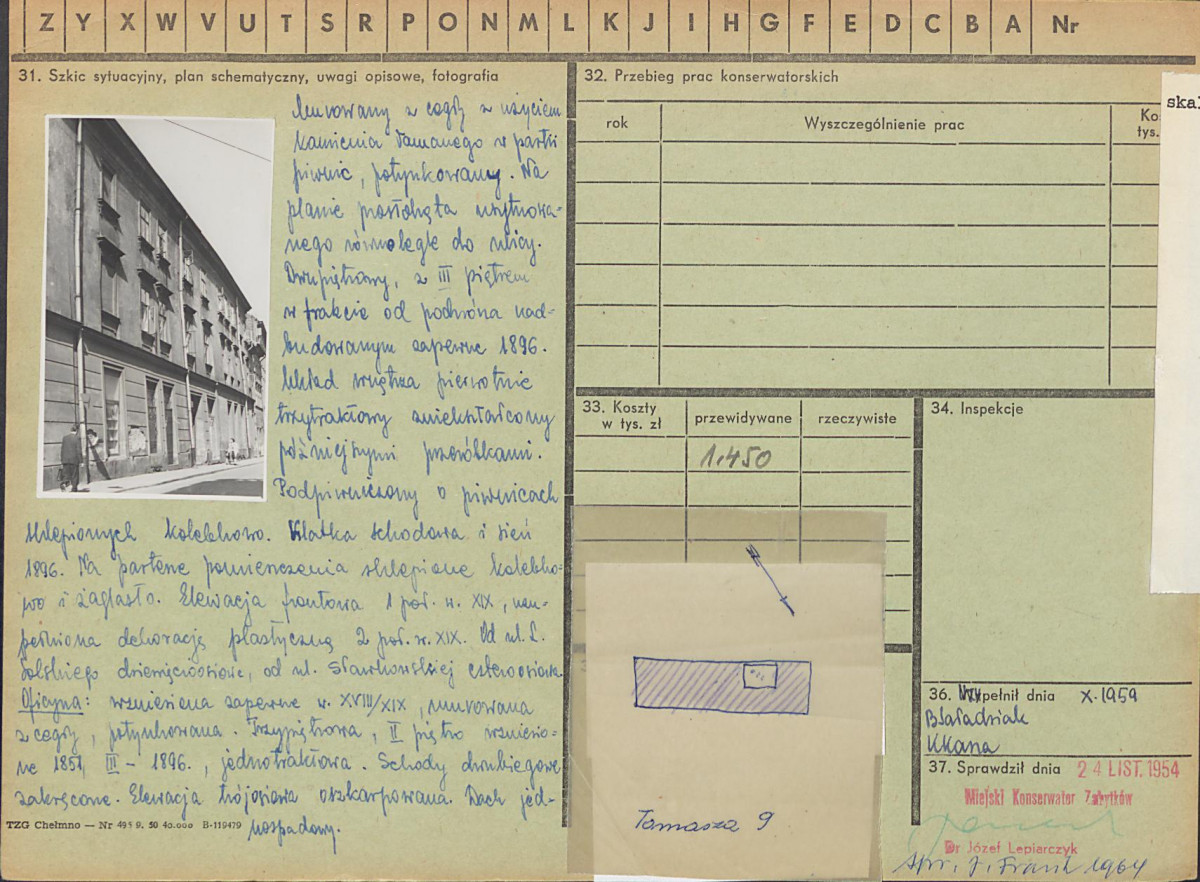 Z Y X W V U T S R P O N M L K J I H G F E D C B A Nr
31. Szkic sytuacyjny, plan schematyczny, uwagi opisowe, fotografia
Murowany z cegły z użyciem
kamienia łamanego w partii
piwnic, potynkowany. Na
planie prostokąta usytuowa-
nego równolegle do ulicy.
Dwupiętrowy, z III piętrem
w trakcie od podwórza nad-
budowanym zapewne 1896.
Układ wnętrza pierwotnie
trzytraktowy zniekształcony
późniejszymi przeróbkami.
Podpiwniczony o piwnicach
sklepionych kolebkowo. Klatka schodowa i sień
1896. Na parterze pomieszczenia sklepione kolebko-
wo i żaglasto. Elewacja frontowa 1 poł. w. XIX, uzu-
pełniona dekoracją plastyczną 2 poł. w. XIX. Od ul. L.
Solskiego dziewięcioosiowa, od ul. Sławkowskiej czteroosiowa.
Oficyna: wzniesiona zapewne w. XVIII/XIX, murowana
z cegły, potynkowana. Trzypiętrowa, II piętro wzniesio-
ne 1851, III - 1896., jednotraktowa. Schody dwubiegowe
zakręcone. Elewacja trójosiowa oszkarpowana. Dach jed-
nospadowy.
TZG Chełmno — Nr 495 9. 50 40.000 B-119479
32. Przebieg prac konserwatorskich
rok Wyszczególnienie prac Ko
tys.
ska
33. Koszty
w tys. zł przewidywane rzeczywiste
1.450
34. Inspekcje
Tomasza 9
36. Wypełnił dnia X.1959
KKana
37. Sprawdził dnia 24 LIST. 1954
Miejski Konserwator Zabytków
Dr Józef Lepiarczyk
spr. J. Frank 1964